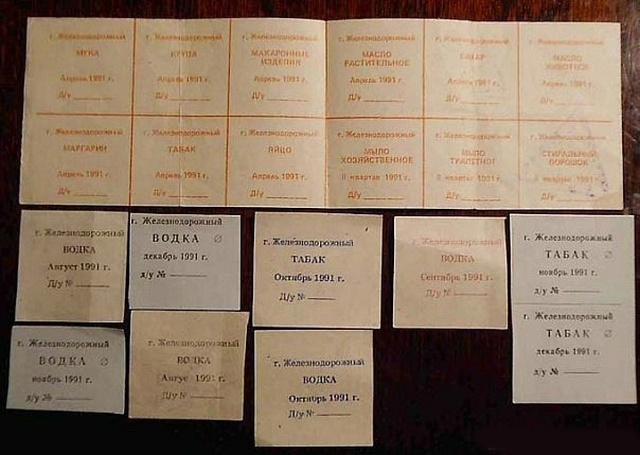 г. Железнодорожный
МУКА
Апрель 1991 г.
Д/у
г. Железнодорожный
КРУПА
Апрель 1991 г.
Д/у
г. Железнодорожный
МАКАРОННЫЕ
ИЗДЕЛИЯ
Апрель 1991 г.
Д/у
г. Железнодорожный
МАСЛО
РАСТИТЕЛЬНОЕ
Апрель 1991 г.
Д/у
г. Железнодорожный
Апрель 1991 г.
Д/у
г. Железнодорожный
МАСЛО
ЖИВОТНОЕ
Апрель 1991 г.
Д/у
г. Железнодорожный
МАРГАРИН
Апрель 1991 г.
Д/у
г. Железнодорожный
ТАБАК
Апрель 1991 г.
Д/у
г. Железнодорожный
ЯЙЦО
Апрель 1991 г.
Д/у
г. Железнодорожный
МЫЛО
ХОЗЯЙСТВЕННОЕ
II квартал 1991 г.
Д/у
г. Железнодорожный
МЫЛО
ТУАЛЕТНОЕ
II квартал 1991 г.
Д/у
г. Железнодорожный
СТИРАЛЬНЫЙ
ПОРОШОК
квартал 1991 г.
Д/у
г. Железнодорожный
ВОДКА
Август 1991 г.
Д/у №
г. Железнодорожный
ВОДКА
декабрь 1991 г.
д/у №
г. Железнодорожный
ТАБАК
Октябрь 1991 г.
Д/у №
г. Железнодорожный
ВОДКА
Сентябрь 1991 г.
Д/у №
г. Железнодорожный
ТАБАК
ноябрь 1991 г.
д/у №
г. Железнодорожный
ТАБАК
декабрь 1991 г.
д/у №
г. Железнодорожный
ВОДКА
ноябрь 1991 г.
д/у №
г. Железнодорожный
ВОДКА
Август 1991 г.
Д/у №
г. Железнодорожный
ВОДКА
Октябрь 1991 г.
Д/у №